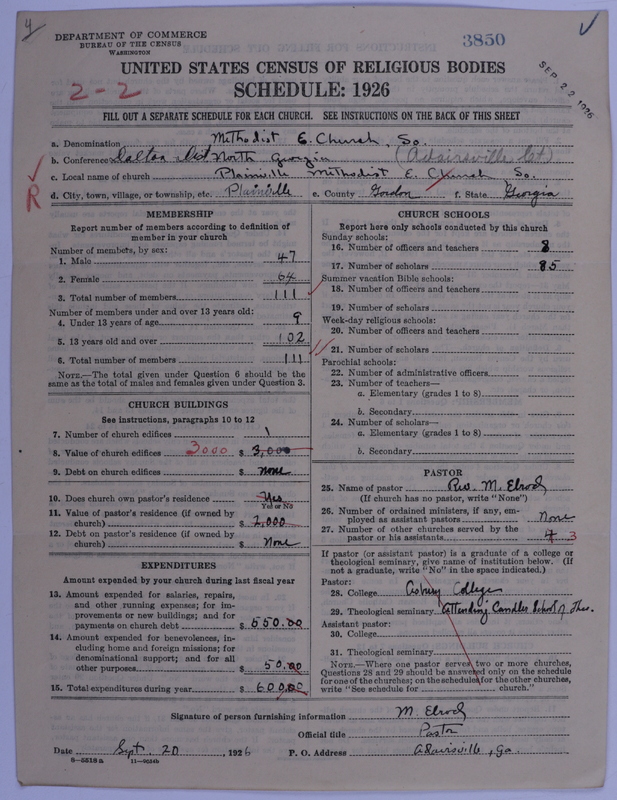 4
DEPARTMENT OF COMMERCE
BUREAU OF THE CENSUS
WASHINGTON
3850
SEP 22 1926
UNITED STATES CENSUS OF RELIGIOUS BODIES
SCHEDULE: 1926
2-2
FILL OUT A SEPARATE SCHEDULE FOR EACH CHURCH. SEE INSTRUCTIONS ON THE BACK OF THIS SHEET
a. Denomination Methodist E. Church, So.
b. Conference Dalton Dist North Georgia (Adairsville Ct)
c. Local name of church Plainville Methodist E. Church So.
R
d. City, town, village, or township, etc. Plainville e. County Gordon f. State Georgia
MEMBERSHIP
Report number of members according to definition of
member in your church
Number of members, by sex:
1. Male 47
2. Female 64
3. Total number of members 111
Number of members under and over 13 years old:
4. Under 13 years of age 9
5. 13 years old and over 102
6. Total number of members 111
NOTE.—The total given under Question 6 should be
same as the total of males and females given under Question 3.
CHURCH BUILDINGS
See instructions, paragraphs 10 to 12
7. Number of church edifices 1
8. Value of church edifices 3000 $ 3,000
9. Debt on church edifices $ none
10. Does church own pastor's residence Yes
Yes or No
11. Value of pastor's residence (if owned by
church) $ 2,000
12. Debt on pastor's residence (if owned by
church) $ None
EXPENDITURES
Amount expended by your church during last fiscal year
13. Amount expended for salaries, repairs,
and other running expenses; for im-
provements or new buildings; and for
payments on church debt $ 550.00
14. Amount expended for benevolences, in-
cluding home and foreign missions; for
denominational support; and for all
other purposes $ 50.00
15. Total expenditures during year $ 600.00
CHURCH SCHOOLS
Report here only schools conducted by this church
Sunday schools:
16. Number of officers and teachers 8
17. Number of scholars 85
Summer vacation Bible schools:
18. Number of officers and teachers
19. Number of scholars
Week-day religious schools:
20. Number of officers and teachers
21. Number of scholars
Parochial schools:
22. Number of administrative officers
23. Number of teachers—
a. Elementary (grades 1 to 8)
b. Secondary
24. Number of scholars—
a. Elementary (grades 1 to 8)
b. Secondary
PASTOR
25. Name of pastor Rev. M. Elrod
(If church has no pastor, write "None")
26. Number of ordained ministers, if any, em-
ployed as assistant pastors None
27. Number of other churches served by the
pastor or his assistants 4 3
If pastor (or assistant pastor) is a graduate of a college or
theological seminary, give name of institution below. (If
not a graduate, write "No" in the space indicated.)
Pastor:
28. College Asbury College
29. Theological seminary Attending Candler School of Theo.
Assistant pastor:
30. College
31. Theological seminary
NOTE.—Where one pastor serves two or more churches,
Questions 28 and 29 should be answered only on the schedule
for one of the churches; on the schedules for the other churches,
write "See schedule for church."
Signature of person furnishing information M. Elrod
Official title Pastor
Date Sept. 20, 1926 P. O. Address Adairsville, Ga.
8-5518a 11-9034b